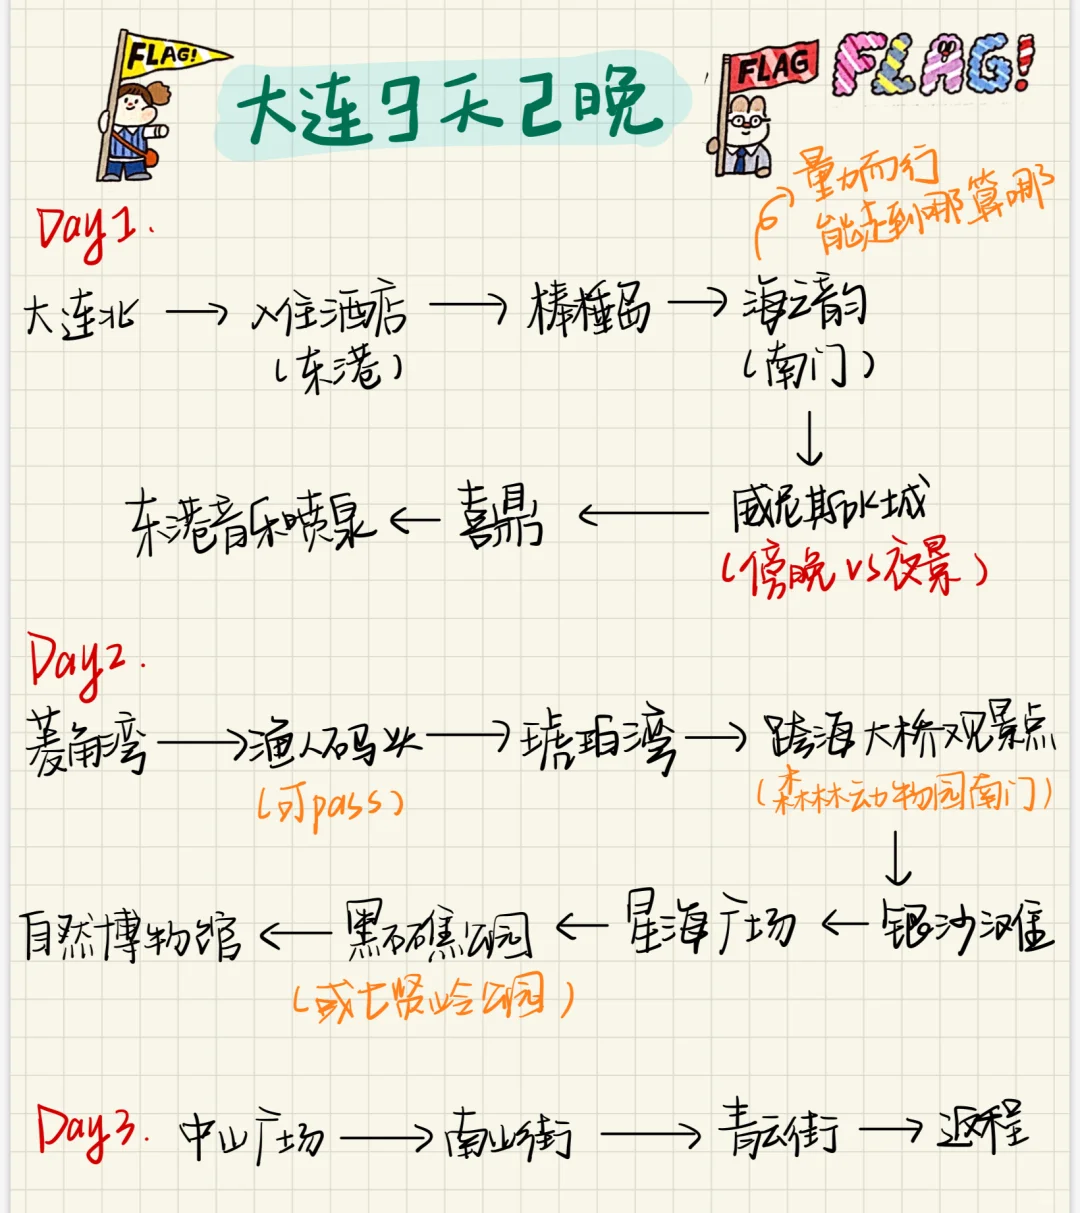 FLAG!
FLAG
FLAG!
大连3天2晚
量力而行
能走到哪算哪
Day1.
大连北 → 入住酒店 → 棒棰岛 → 海之韵
(东港)
(南门)
↓
东港音乐喷泉 ← 喜鼎 ← 威尼斯水城
(傍晚 VS 夜景)
Day2.
菱角湾 → 渔人码头 → 琥珀湾 → 跨海大桥观景点
(可pass)
(森林动物园南门)
↓
自然博物馆 ← 黑石礁公园 ← 星海广场 ← 银沙滩
(或七贤岭公园)
Day3. 中山广场 → 南山街 → 青云街 → 返程